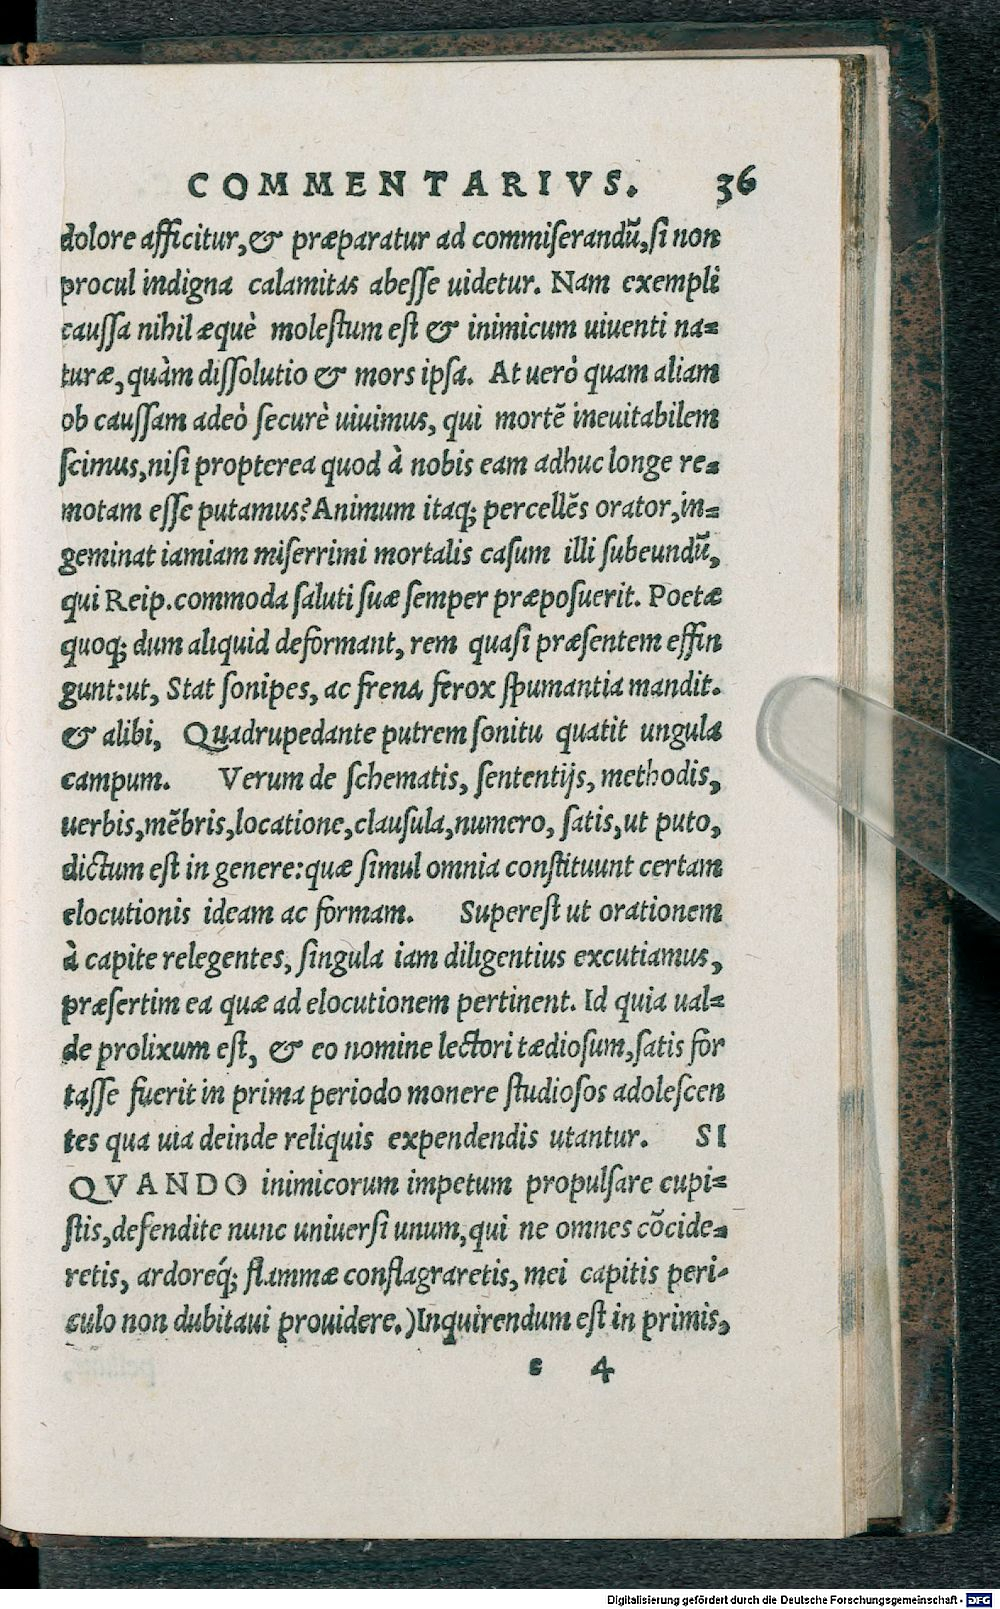 COMMENTARIVS. 36
dolore afficitur,& præparatur ad commiſerandũ,ſi non
procul indigna calamitas abeſſe uidetur. Nam exempli
cauſſa nihil æquè moleſtum eſt & inimicum uiuenti na=
turæ, quàm diſſolutio & mors ipſa. At uerò quam aliam
ob cauſſam adeò ſecurè uiuimus, qui mortẽ ineuitabilem
ſcimus,niſi propterea quod à nobis eam adhuc longe re=
motam eſſe putamus? Animum itaq; percellẽs orator,in=
geminat iamiam miſerrimi mortalis caſum illi ſubeundũ,
qui Reip.commoda ſaluti ſuæ ſemper præpoſuerit. Poetæ
quoq; dum aliquid deformant, rem quaſi præſentem effin
gunt:ut, Stat ſonipes, ac frena ferox ſpumantia mandit.
& alibi, Quadrupedante putrem ſonitu quatit ungula
campum. Verum de ſchematis, ſententijs, methodis,
uerbis,mẽbris,locatione,clauſula,numero, ſatis,ut puto,
dictum eſt in genere:quæ ſimul omnia conſtituunt certam
elocutionis ideam ac formam. Supereſt ut orationem
à capite relegentes, ſingula iam diligentius excutiamus,
præſertim ea quæ ad elocutionem pertinent. Id quia ual=
de prolixum eſt, & eo nomine lectori tædioſum,ſatis for
taſſe fuerit in prima periodo monere ſtudioſos adoleſcen
tes qua uia deinde reliquis expendendis utantur. SI
QVANDO inimicorum impetum propulſare cupi=
ſtis,defendite nunc uniuerſi unum,qui ne omnes cõcide=
retis, ardoreq́; flammæ conflagraretis, mei capitis peri-
culo non dubitaui prouidere.)Inquirendum eſt in primis,
e 4
Digitalisierung gefördert durch die Deutsche Forschungsgemeinschaft - DFG